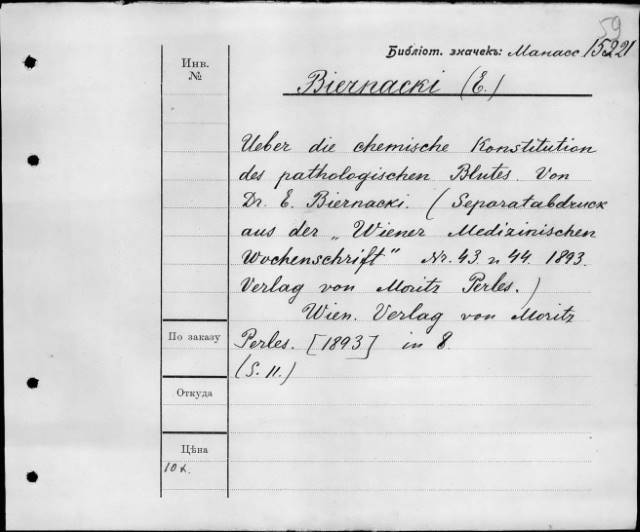 59
Библіот. значекъ: Манасс. 15221
Инв.
№
Biernacki (E.)
Ueber die chemische Konstitution
des pathologischen Blutes. Von
Dr. E. Biernacki. (Separatabdruck
aus der „Wiener Medizinischen
Wochenschrift" Nr. 43 u 44. 1893.
Verlag von Moritz Perles.)
Wien. Verlag von Moritz
Perles. [1893] in 8
(S. 11.)
По заказу
Откуда
Цѣна
10 к.